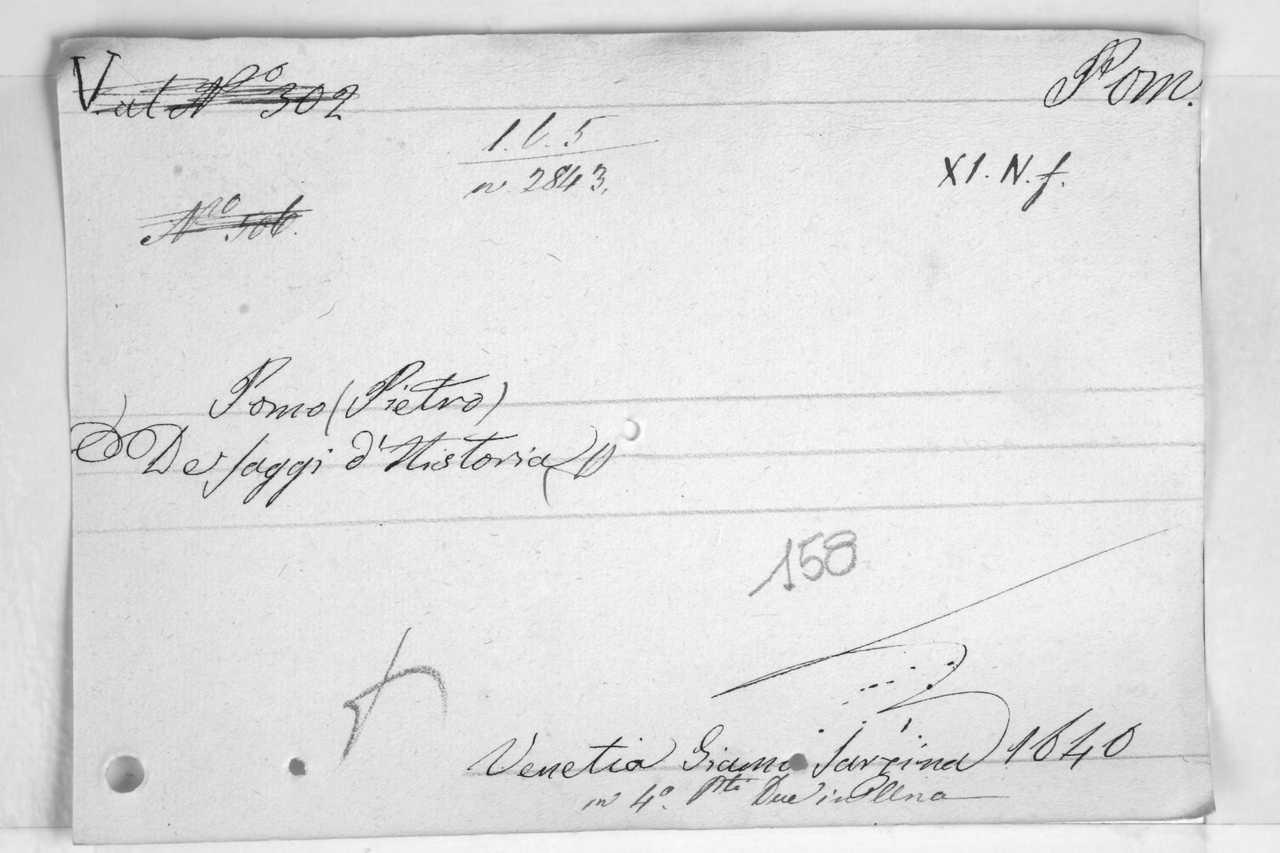 Vat N.º 302
Pom.
1. b. 5
n 2843.
XI. N. f.
N.ro 506.
Pomo (Pietro)
De saggi d'Historia
158
Venetia Giami Sarzina 1640
in 4º. Pti Due in Una